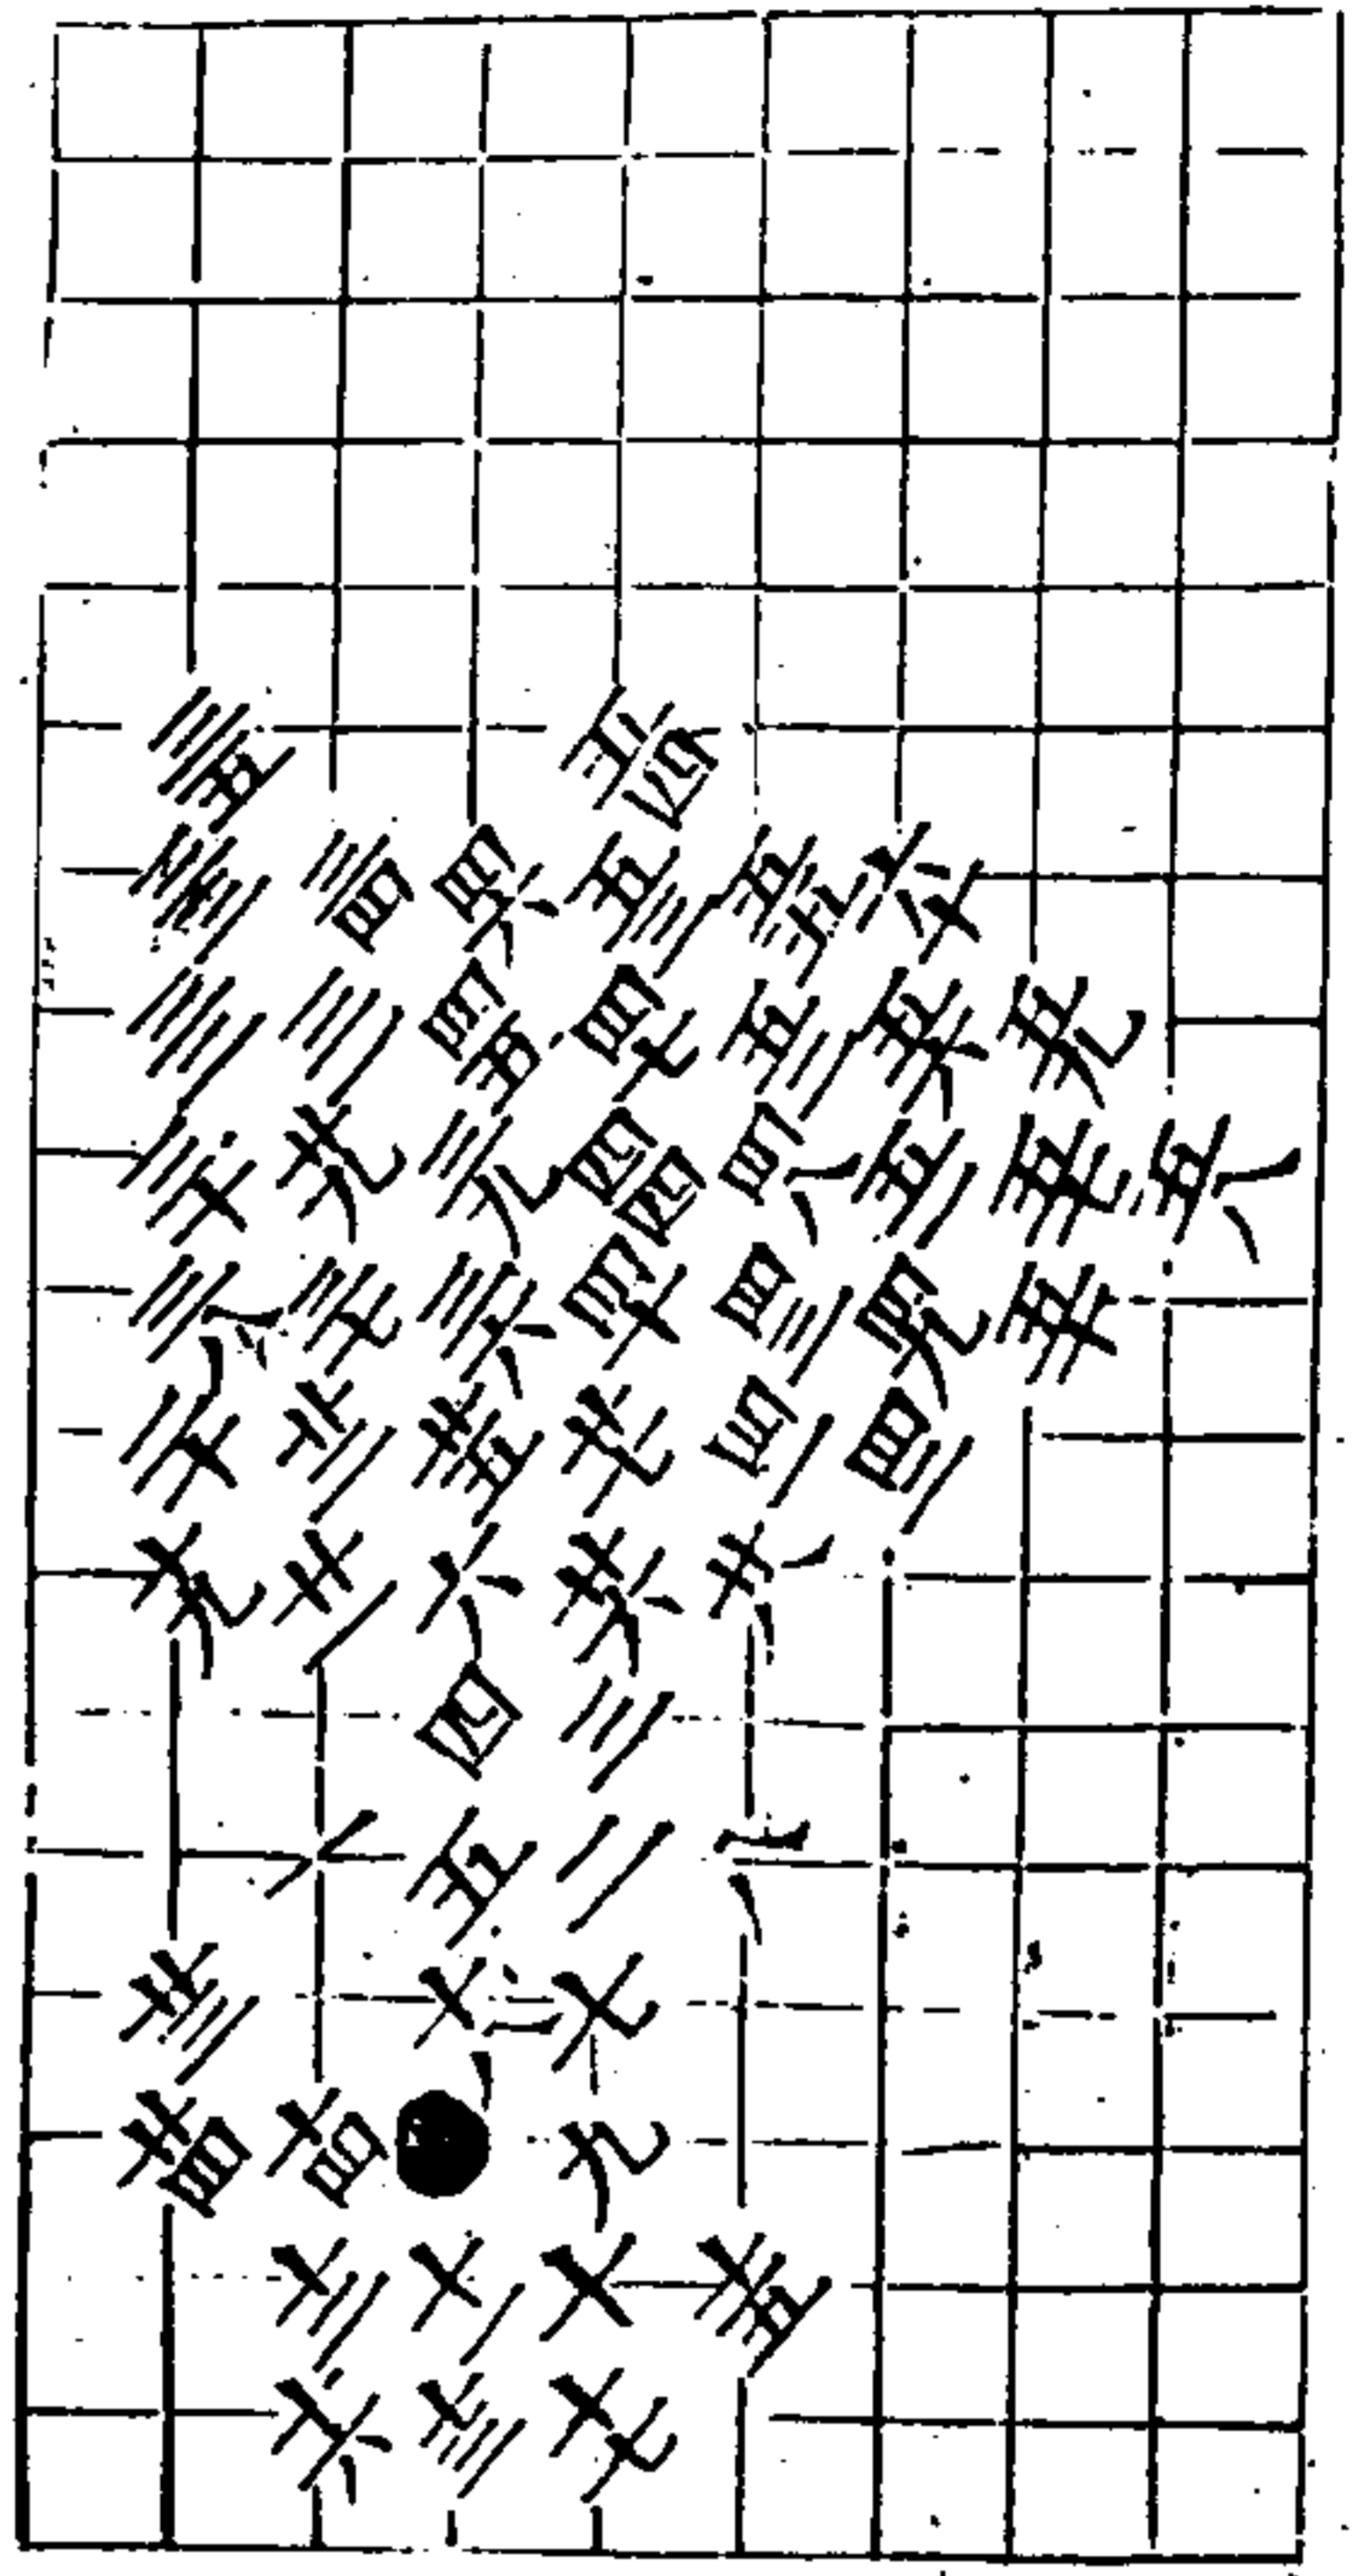 三五 五四
三三 三四 四六 五三 五五 六十
三二 三一 四五 四七 五二 五六 五九
三十 廿九 三九 四四 四八 五一 五七 五八
三八 三七 三六 四十 四三 四九 五十
二十 廿二 廿五 廿七 四一 四二
十九 廿一 六 廿六 廿八
四 三
一 五 二 八
廿三 十八 七
廿四 十四 九
十二 十一 十 十五
十六 十三 十七